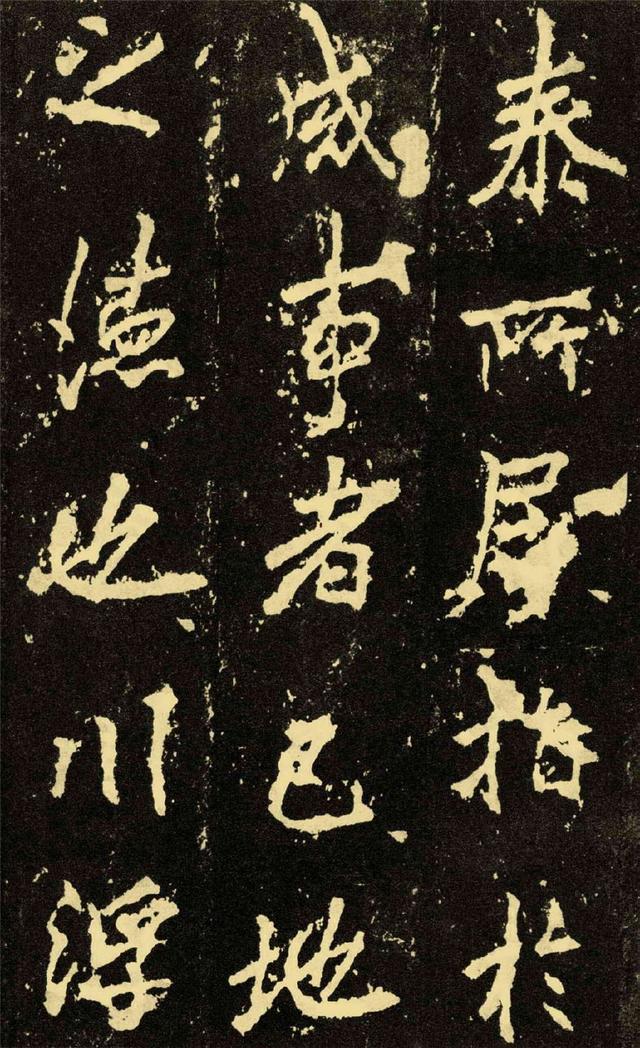 泰所屬指於
成事者已地
之德也川浮